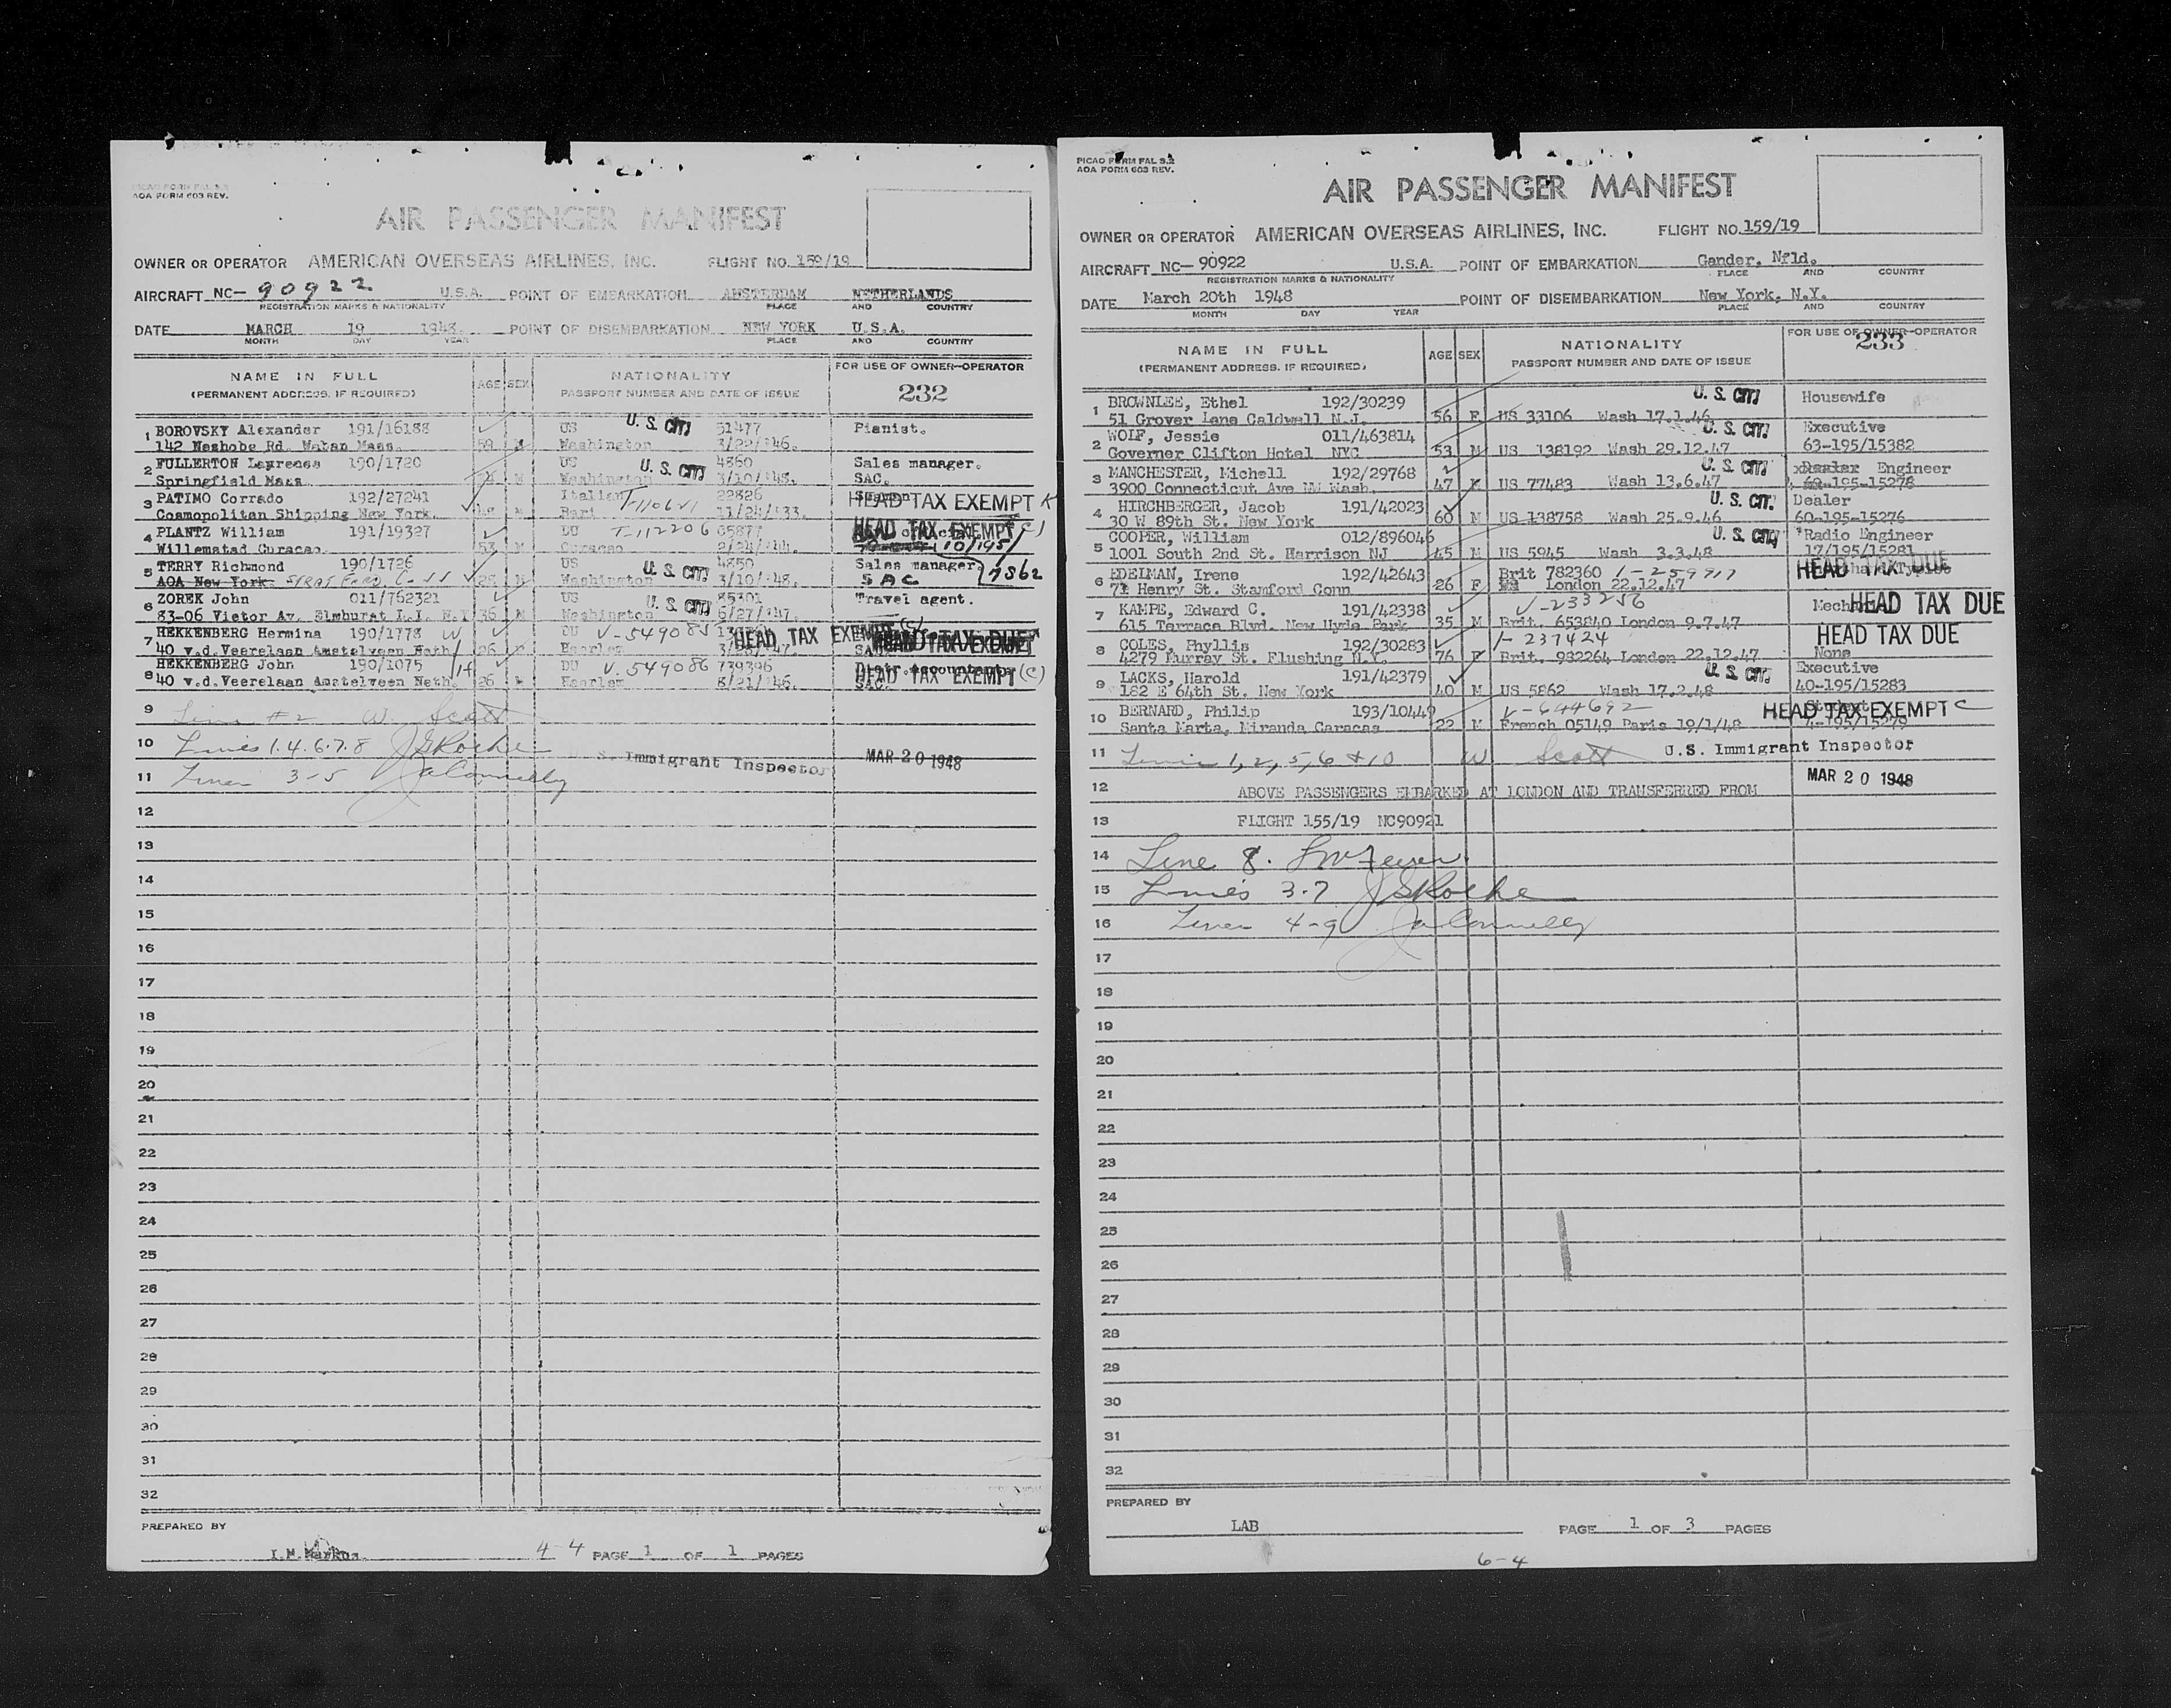 PICAO FORM FAL 3.2
AOA FORM 603 REV.
AIR PASSENGER MANIFEST
OWNER OR OPERATOR AMERICAN OVERSEAS AIRLINES, INC. FLIGHT NO. 159/19
AIRCRAFT NC- 90922 U.S.A. POINT OF EMBARKATION AMSTERDAM NETHERLANDS
REGISTRATION MARKS & NATIONALITY PLACE AND COUNTRY
DATE MARCH 19 1948. POINT OF DISEMBARKATION NEW YORK U.S.A.
MONTH DAY YEAR PLACE AND COUNTRY
NAME IN FULL AGE SEX NATIONALITY FOR USE OF OWNER-OPERATOR
(PERMANENT ADDRESS. IF REQUIRED) PASSPORT NUMBER AND DATE OF ISSUE 232
1 BOROVSKY Alexander 191/16188 US U. S. CIT. 51477 Pianist.
142 Neshobe Rd. Waban Mass. 59 M Washington 3/22/'46.
2 FULLERTON Lawrence 190/1720 US U. S. CIT. 4860 Sales manager.
Springfield Mass. M Washington 3/10/'48. SAC.
3 PATIMO Corrado 192/27241 Italian 22826 HEAD TAX EXEMPT
Cosmopolitan Shipping New York. M Bari 11/24/'33.
4 PLANTZ William 191/19327 DU T-112206 HEAD TAX EXEMPT (C)
Willemstad Curacao. 53 M Curacao
5 TERRY Richmond 190/1726 US U. S. CIT. 4850 Sales manager.
AOA New York. M Washington 3/10/'48. SAC
6 ZOREK John 011/762321 US U. S. CIT. 85301 Travel agent.
83-06 Vietor Av. Elmhurst L.I. N.Y 36 M Washington 5/27/'47.
7 HEKKENBERG Hermina 190/1778 DU V-549085 HEAD TAX EXEMPT (C)
40 v.d.Veerelaan Amstelveen Neth. 26 F Haarlem
8 HEKKENBERG John 190/1075 DU V.549086 739396 Distr. accountant.
40 v.d.Veerelaan Amstelveen Neth. 26 Haarlem 8/21/'46. HEAD TAX EXEMPT (C)
9 Line #2 W. Scott
10 Lines 1.4.6.7.8 JSRoche
U. S. Immigrant Inspector MAR 20 1948
11 Lines 3-5 JaConnelly
12
13
14
15
16
17
18
19
20
21
22
23
24
25
26
27
28
29
30
31
32
PREPARED BY
4-4 PAGE 1 OF 1 PAGES
PICAO FORM FAL 3.2
AOA FORM 603 REV.
AIR PASSENGER MANIFEST
OWNER OR OPERATOR AMERICAN OVERSEAS AIRLINES, INC. FLIGHT NO. 159/19
AIRCRAFT NC- 90922 U.S.A. POINT OF EMBARKATION Gander, Nfld.
REGISTRATION MARKS & NATIONALITY PLACE AND COUNTRY
DATE March 20th 1948 POINT OF DISEMBARKATION New York, N.Y.
MONTH DAY YEAR PLACE AND COUNTRY
NAME IN FULL AGE SEX NATIONALITY FOR USE OF OWNER-OPERATOR
(PERMANENT ADDRESS. IF REQUIRED) PASSPORT NUMBER AND DATE OF ISSUE 233
1 BROWNLEE, Ethel 192/30239 U. S. CIT. Housewife
51 Grover Lane Caldwell N.J. 56 F US 33106 Wash 17.1.46
2 WOLF, Jessie 011/463814 U. S. CIT. Executive
Governer Clifton Hotel NYC 53 M US 138192 Wash 29.12.47 63-195/15382
3 MANCHESTER, Michell 192/29768 U. S. CIT. Engineer
3900 Connecticut Ave NW Wash. 47 US 77483 Wash 13.6.47 60-195-15278
4 HIRCHBERGER, Jacob 191/42023 U. S. CIT. Dealer
30 W 89th St. New York 60 M US 138758 Wash 25.9.46 60-195-15276
5 COOPER, William 012/896046 U. S. CIT. Radio Engineer
1001 South 2nd St. Harrison NJ 45 M US 5945 Wash 3.3.48 17/195/15281
6 EDELMAN, Irene 192/42643 Brit 782360 HEAD TAX DUE
71 Henry St. Stamford Conn 26 F London 22.12.47
7 KAMPE, Edward C. 191/42338 V-233256 HEAD TAX DUE
615 Terrace Blvd. New Hyde Park 35 M Brit. 653840 London 9.7.47
8 COLES, Phyllis 192/30283 237424 HEAD TAX DUE
4279 Murray St. Flushing N.Y. 76 F Brit. 982264 London 22.12.47 None
9 LACKS, Harold 191/42379 U. S. CIT. Executive
182 E 64th St. New York 40 M US 5862 Wash 17.2.48 40-195/15283
10 BERNARD, Philip 193/10449 V-644692 HEAD TAX EXEMPT C
Santa Marta, Miranda Caracas 22 M French 05149 Paris 19/1/48
11 Lines 1, 2, 5, 6 & 10 W Scott U.S. Immigrant Inspector
MAR 20 1948
12 ABOVE PASSENGERS EMBARKED AT LONDON AND TRANSFERRED FROM
13 FLIGHT 155/19 NC90921
14 Line 8.
15 Lines 3.7 JSRoche
16 Lines 4-9 JaConnelly
17
18
19
20
21
22
23
24
25
26
27
28
29
30
31
32
PREPARED BY
LAB PAGE 1 OF 3 PAGES
6-4